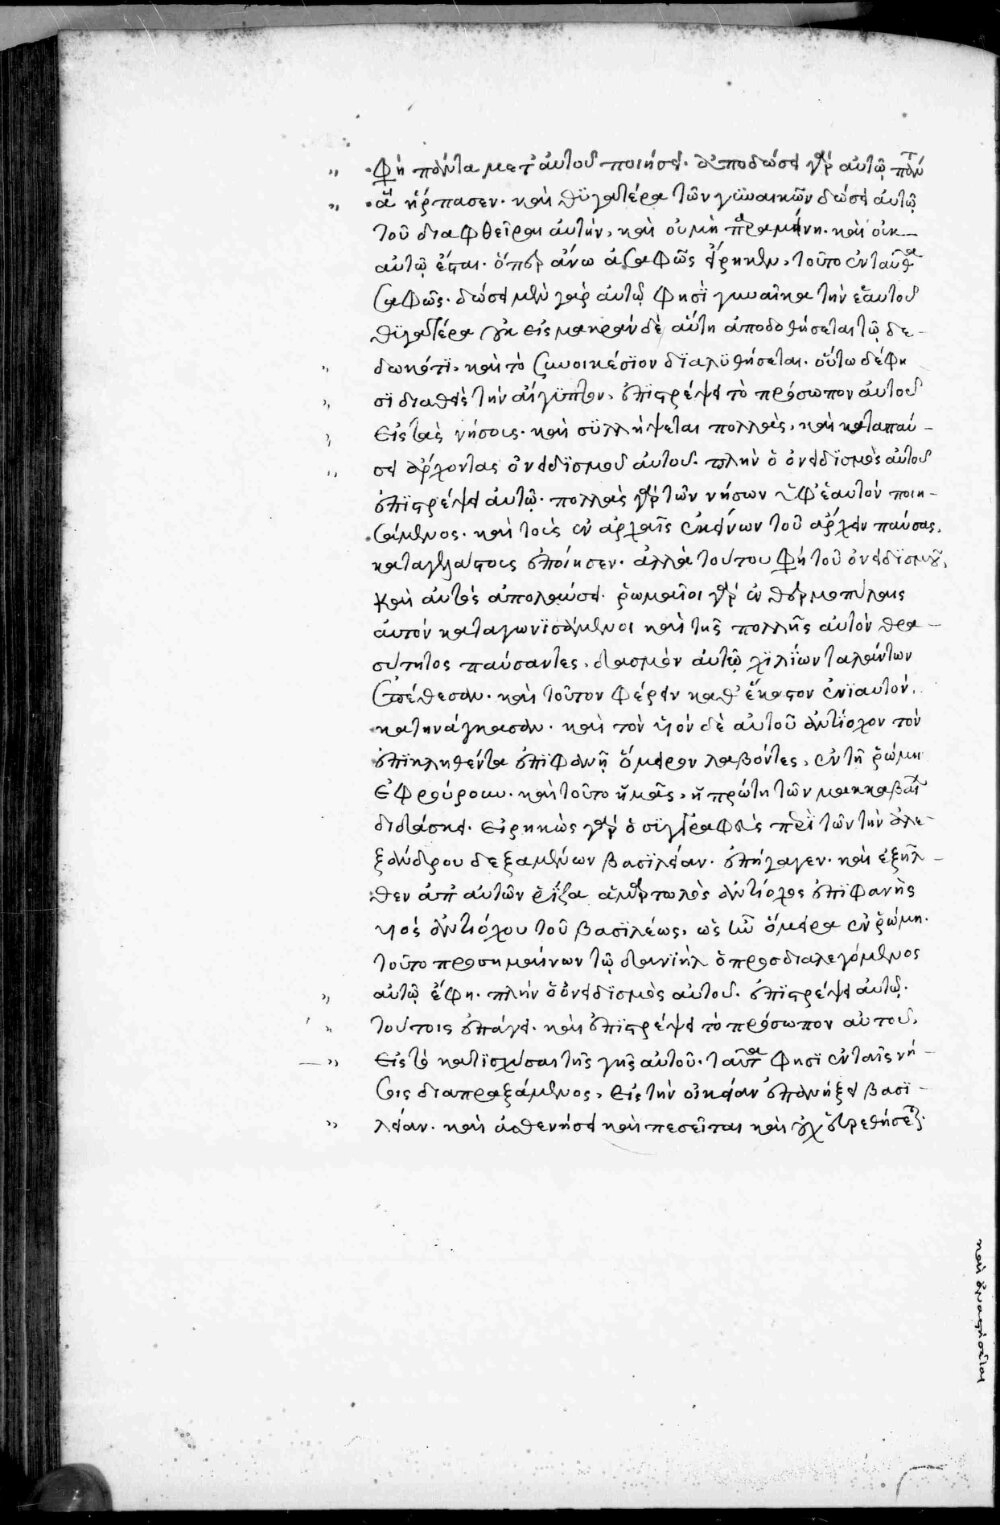 φη πάντα μετ' αὐτοῦ ποιήσει. ἀποδώσει γὰρ αὐτῷ πάν
ἃ ἥρπασεν. καὶ θυγατέρα τῶν γυναικῶν δώσει αὐτῷ
τοῦ διαφθεῖραι αὐτὴν, καὶ οὐ μὴ παραμείνη. καὶ οὐκ
αὐτῷ ἔσται. ὅπερ ἄνω ἀσαφῶς εἴρηκεν, τοῦτο ἐνταῦθα
σαφῶς. δώσει μὲν γὰρ αὐτῷ φησὶ γυναῖκα τὴν ἑαυτοῦ
θυγατέρα οὐκ εἰς μακρὰν δὲ αὕτη ἀποδοθήσεται τῷ δε-
δωκότι, καὶ τὸ συνοικέσιον διαλυθήσεται. οὕτω δέ φη
σι διαθεὶς τὴν αἴγυπτον, ἐπιστρέψει τὸ πρόσωπον αὐτοῦ
εἰς τὰς νήσους. καὶ συλλήψεται πολλὰς, καὶ καταπαύ-
σει ἄρχοντας ὀνειδισμοῦ αὐτοῦ. πλὴν ὁ ὀνειδισμὸς αὐτοῦ
ἐπιστρέψει αὐτῷ. πολλὰς γὰρ τῶν νήσων ὑφ' ἑαυτὸν ποιη-
σάμενος. καὶ τοὺς ἐν ἀρχαῖς ἐκείνων τοῦ ἄρχειν παύσας,
καταγελάστους ἐποίησεν. ἀλλὰ τούτου φη τοῦ ὀνειδισμοῦ,
καὶ αὐτὸς ἀπολαύσει. ῥωμαῖοι γὰρ ἐν θερμοπύλαις
αὐτὸν καταγωνισάμενοι καὶ τῆς πολλῆς αὐτὸν θρα-
σύτητος παύσαντες, δασμὸν αὐτῷ χιλίων ταλάντων
ἐπέθεσαν. καὶ τοῦτον φέρειν καθ' ἕκαστον ἐνιαυτόν,
κατηνάγκασαν. καὶ τὸν υἱὸν δὲ αὐτοῦ ἀντίοχον τὸν
ἐπικληθέντα ἐπιφανῆ ὅμηρον λαβόντες, ἐν τῇ ῥώμη
ἐφρούρουν. καὶ τοῦτο ἡμᾶς, ἡ πρώτη τῶν μακκαβαί
διδάσκει. εἰρηκὼς γὰρ ὁ συγγραφεὺς περὶ τῶν τὴν ἀλε-
ξάνδρου δεξαμένων βασιλείαν. ἐπήγαγεν. καὶ ἐξῆλ-
θεν ἀπ' αὐτῶν ῥίζα ἁμαρτωλὸς ἀντίοχος ἐπιφανὴς
υἱὸς ἀντιόχου τοῦ βασιλέως, ὡς ἦν ὅμηρα ἐν ῥώμη.
τοῦτο προσημαίνων τῷ δανιὴλ ὁ προσδιαλεγόμενος
αὐτῷ ἔφη. πλὴν ὁ ὀνειδισμὸς αὐτοῦ. ἐπιστρέψει αὐτῷ.
τούτοις ἐπάγει. καὶ ἐπιστρέψει τὸ πρόσωπον αὐτοῦ,
εἰς τὸ κατισχύσαι τῆς γῆς αὐτοῦ. ταῦτα φησὶ ἐν ταῖς νή-
σοις διαπραξάμενος, εἰς τὴν οἰκείαν ἐπανήξει βασι-
λείαν. καὶ ἀσθενήσει καὶ πεσεῖται καὶ οὐχ εὑρεθήσεται.
καὶ ἀναστήσεται